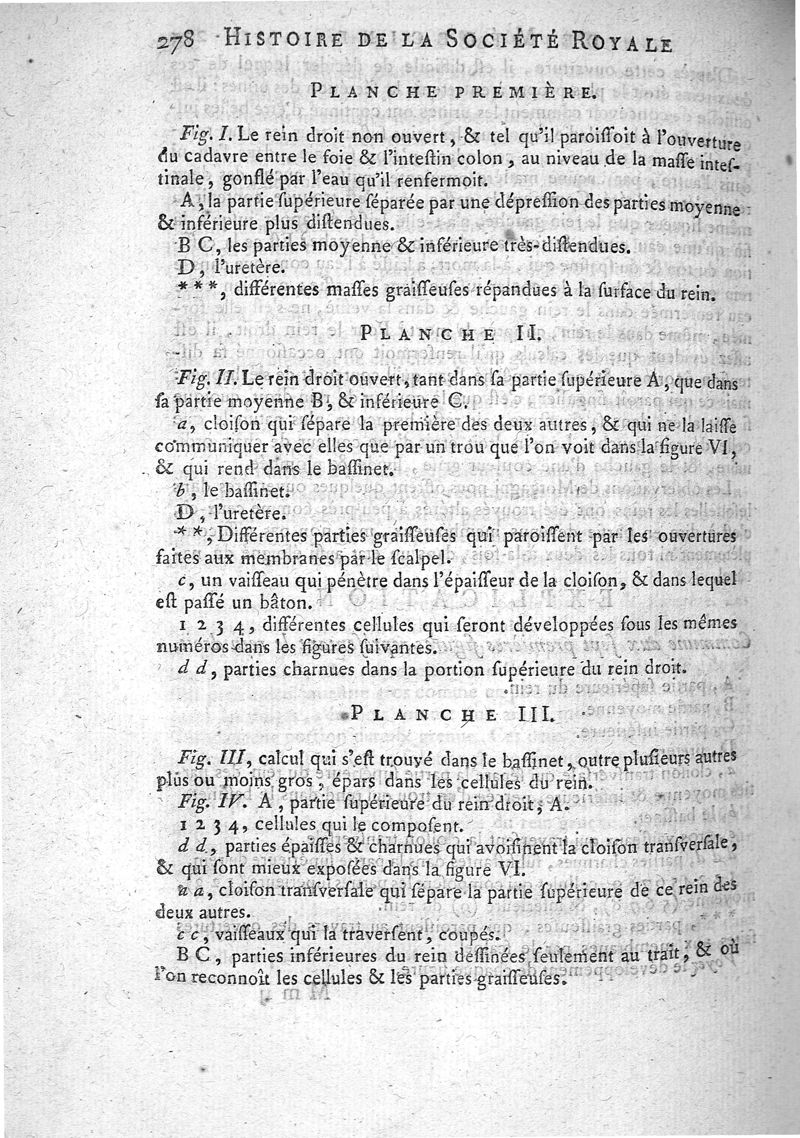 278 HISTOIRE DE LA SOCIÉTÉ ROYALE
PLANCHE PREMIÈRE.
Fig. I. Le rein droit non ouvert, & tel qu'il paroiſſoit à l'ouverture
du cadavre entre le foie & l'inteſtin colon, au niveau de la maſſe inteſ-
tinale, gonflé par l'eau qu'il renfermoit.
A, la partie ſupérieure ſéparée par une dépreſſion des parties moyenne
& inférieure plus diſtendues.
B C, les parties moyenne & inférieure très-diſtendues.
D, l'uretère.
***, différentes maſſes graiſſeuſes répandues à la ſurface du rein.
PLANCHE II.
Fig. II. Le rein droit ouvert, tant dans ſa partie ſupérieure A, que dans
ſa partie moyenne B, & inférieure C.
a, cloiſon qui ſépare la première des deux autres, & qui ne la laiſſe
communiquer avec elles que par un trou que l'on voit dans la figure VI,
& qui rend dans le baſſinet.
b, le baſſinet.
D, l'uretère.
**, Différentes parties graiſſeuſes qui paroiſſent par les ouvertures
faites aux membranes par le ſcalpel.
c, un vaiſſeau qui pénètre dans l'épaiſſeur de la cloiſon, & dans lequel
eſt paſſé un bâton.
1 2 3 4, différentes cellules qui ſeront développées ſous les mêmes
numéros dans les figures ſuivantes.
d d, parties charnues dans la portion ſupérieure du rein droit.
PLANCHE III.
Fig. III, calcul qui s'eſt trouvé dans le baſſinet, outre pluſieurs autres
plus ou moins gros, épars dans les cellules du rein.
Fig. IV. A, partie ſupérieure du rein droit, A.
1 2 3 4, cellules qui le compoſent.
d d, parties épaiſſes & charnues qui avoiſinent la cloiſon tranſverſale,
& qui ſont mieux expoſées dans la figure VI.
a a, cloiſon tranſverſale qui ſépare la partie ſupérieure de ce rein des
deux autres.
c c, vaiſſeaux qui la traverſent, coupés.
B C, parties inférieures du rein deſſinées ſeulement au trait, & où
l'on reconnoît les cellules & les parties graiſſeuſes.